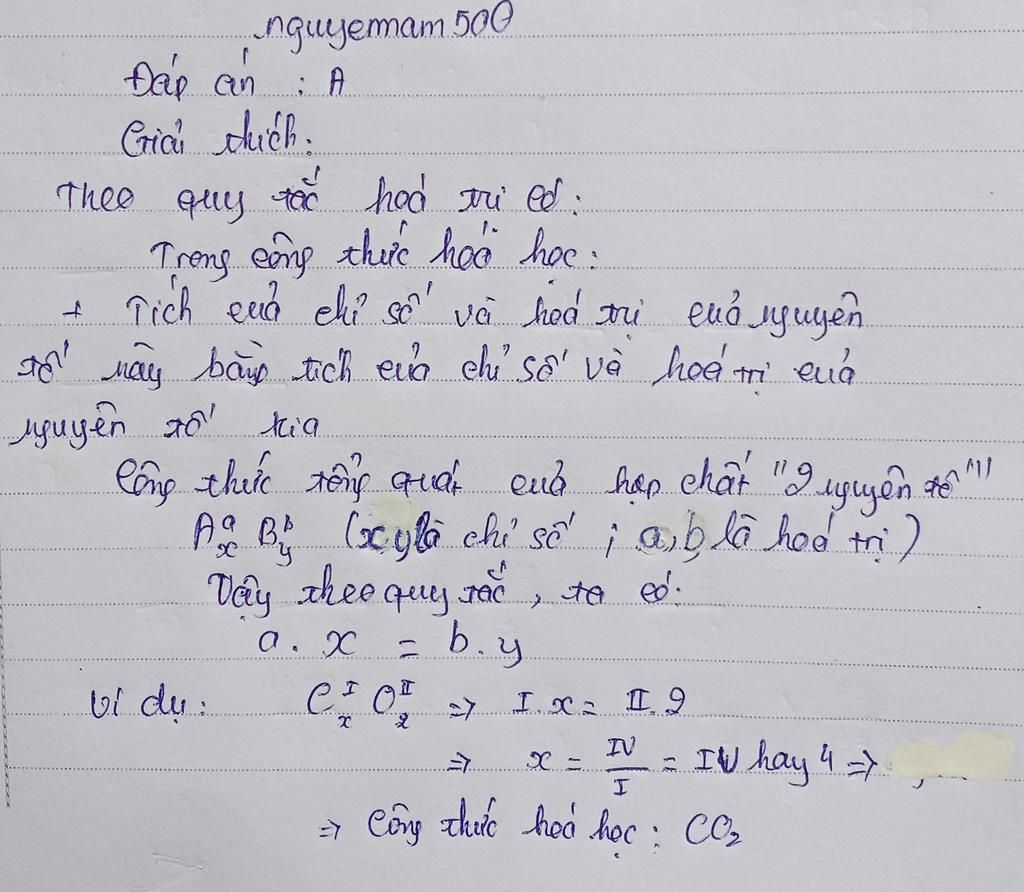 nguyennam500
Đáp án : A
Giải thích:
Theo quy tắc hoá trị có:
Trong công thức hoá học:
+ Tích của chỉ số và hoá trị của nguyên
tố này bằng tích của chỉ số và hoá trị của
nguyên tố kia
Công thức tổng quát của hợp chất "2 nguyên tố"
AₓᵃBᵧᵇ (x,y là chỉ số ; a,b là hoá trị)
Vậy theo quy tắc, ta có:
a. x = b. y
Ví dụ: CₓᴵO₂ᴵᴵ => I.x = II.2
=> x = IV/I = IV hay 4 =>
=> Công thức hoá học: CO₂